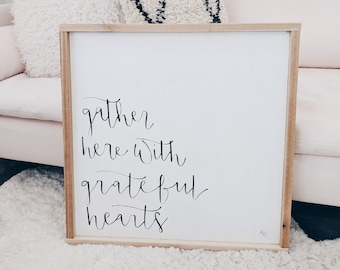 gather
here with
grateful
hearts